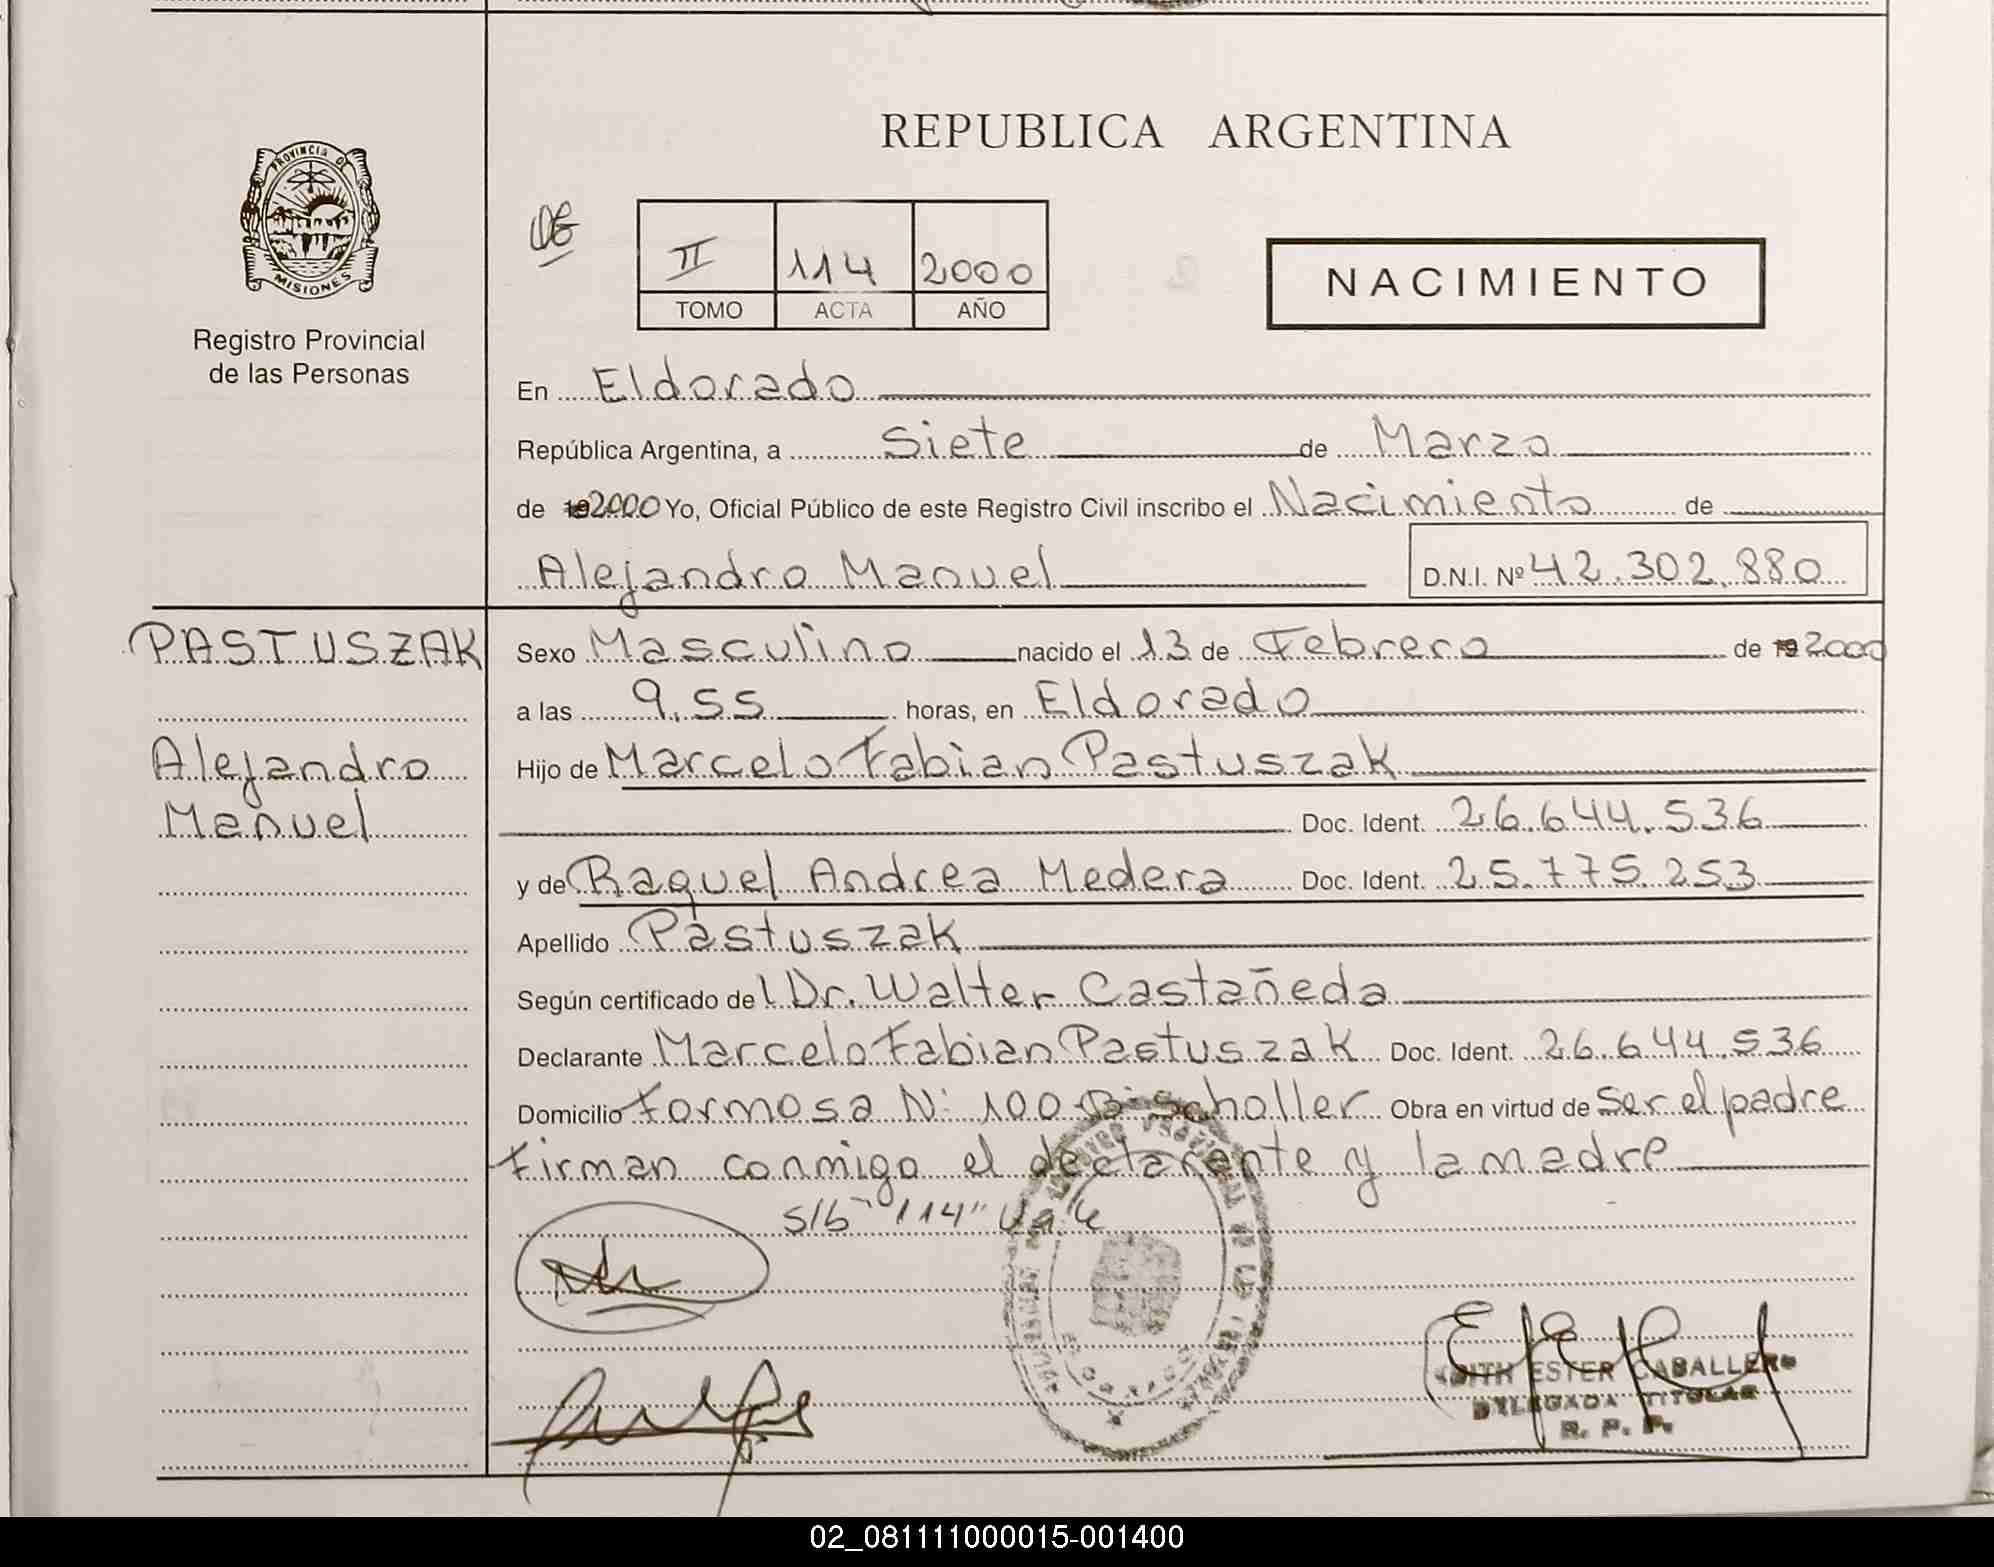 REPUBLICA ARGENTINA
PROVINCIA DE
MISIONES
Registro Provincial
de las Personas
II 114 2000
TOMO ACTA AÑO
NACIMIENTO
En Eldorado
República Argentina, a Siete de Marzo
de 192000 Yo, Oficial Público de este Registro Civil inscribo el Nacimiento de
Alejandro Manuel D.N.I. Nº 42.302.880
PASTUSZAK
Alejandro
Manuel
Sexo Masculino nacido el 13 de Febrero de 192000
a las 9.55 horas, en Eldorado
Hijo de Marcelo Fabian Pastuszak
Doc. Ident. 26.644.536
y de Raquel Andrea Medera Doc. Ident. 25.775.253
Apellido Pastuszak
Según certificado del Dr. Walter Castañeda
Declarante Marcelo Fabian Pastuszak Doc. Ident. 26.644.536
Domicilio Formosa N: 100 Bº Scholler Obra en virtud de Ser el padre
Firman conmigo el declarante y la madre
S/b "114" Vale
EDITH ESTER CABALLERO
DELEGADA TITULAR
R. P. P.
02_081111000015-001400